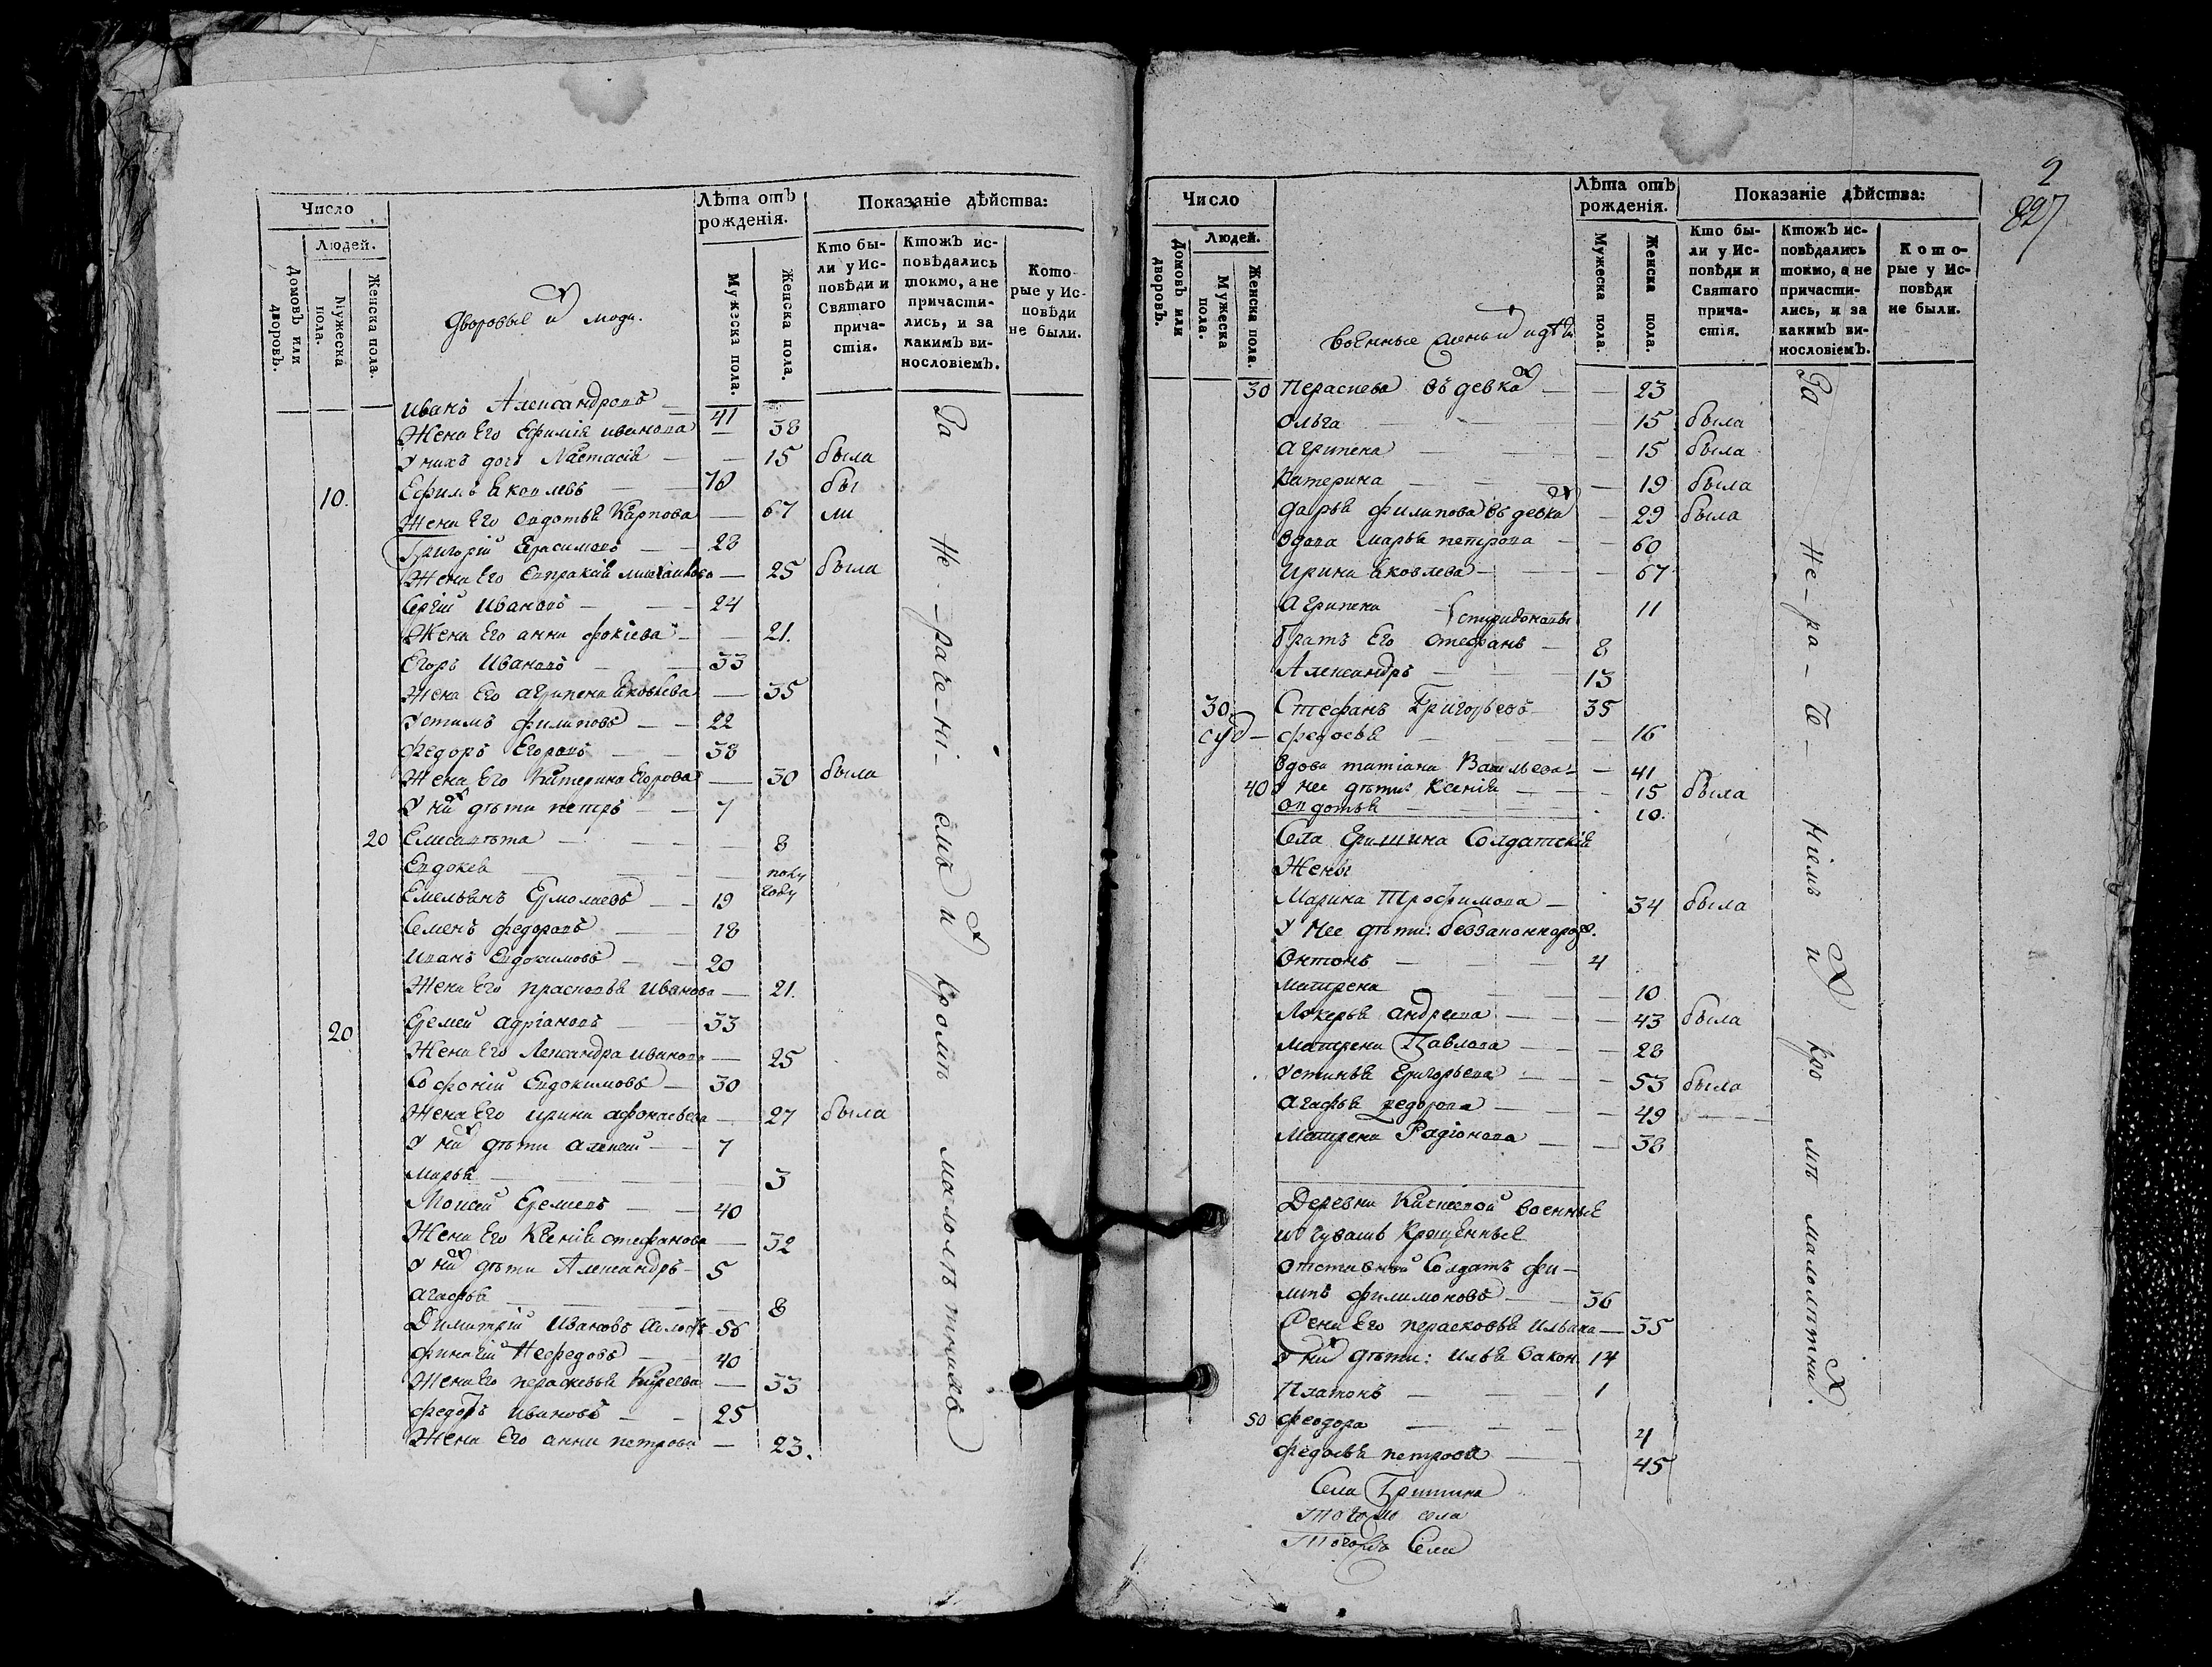 Число
Людей.
Домовъ или дворовъ.
Мужеска пола.
Женска пола.
Лѣта отъ рожденія.
Мужска пола.
Женска пола.
Показаніе дѣйства:
Кто бы-
ли у Ис-
повѣди и
Святаго
прича-
стія.
Ктожъ ис-
повѣдались
токмо, а не
причасти-
лись, и за
какимъ ви-
нословіемъ.
Кото-
рые у Ис-
повѣди
не были.
дворовые и люди.
Иванъ Александровъ — 41
Жена Его Ефимія иванова — 38
У нихъ дочь Настасія — — 15 была
10. Ефимъ Яковлевъ — 70 бы
Жена Его Овдотья Карпова — 67 ли
Григорій Герасимовъ — — 28
Жена Его Евпраксія — 25 была
Сергій Ивановъ — — 24
Жена Его анна фокіева — — 21.
Егоръ Ивановъ — — 33
Жена Его агрипена Яковлева — 35
Устимъ филиповъ — — 22
Федоръ Егоровъ — — 38
Жена Его Катерина Егорова — 30 была
У них дѣти петръ — — 7
20 Елисавѣта — — — 8
Евдокея — — полу году
Емельянъ Ермолаевъ — — 19
Семенъ федоровъ — 18
Иванъ Евдокимовъ — — 20
Жена Его прасковья Иванова — 21.
20. Еремей адріановъ — 33
Жена Его Лександра иванова — 25
Софоній Евдокимовъ — 30
Жена Его ирина афонасьева — 27 была
У них дѣти алексей — — 7
Марья — 3
Моисей Еремеевъ — — 40
Жена Его Ксенія стефанова — 32
У них дѣти Александръ — 5
агафья — 8
Димитрій Ивановъ 56
Нефедовъ — 40
Жена Его перасковья Киреева — 33
федоръ ивановъ — — 25
Жена Его анна петрова — 23.
Ра
Не - раче - ні -
емъ и
кромѣ
малолѣтнихъ
2
827
Число
Людей.
Домовъ или дворовъ.
Мужеска пола.
Женска пола.
Лѣта отъ рожденія.
Мужеска пола.
Женска пола.
Показаніе дѣйства:
Кто бы-
ли у Ис-
повѣди и
Святаго
прича-
стія.
Ктожъ ис-
повѣдались
токмо, а не
причасти-
лись, и за
какимъ ви-
нословіемъ.
Кото-
рые у Ис-
повѣди
не были.
военные
30 въ девках — — 23
Ольга — — 15 была
Агрипена — — — 15 была
Катерина — — — 19 была
дарья филипова въ девках — 29 была
вдова марья петрова — — 60
Ирина Яковлева — — — 67
Агрипена спиридоновы 11
братъ Его стефанъ — 8
Александръ — — 13
30. Стефанъ Григорьевъ — 35
федосья — — 16
вдова татіана Васильева — — 41
40 у нее дѣти: Ксенія — — 15 была
овдотья — — 10.
Села Гришина Солдатскія
Жены
Марина Трофимова — 34 была
У Нее дѣти: беззаконнорож.
Онтонъ — — 4
матрена — — 10
Лукерья андреева — — 43 была
матрена Павлова — — 28
Устинья Григорьева — — 53 была
агафья федорова — — 49
Матрена Радіонова — — 38
Деревни военные
Крещенные
отставной Солдатъ фи-
липъ филимоновъ — 36
Жена Его перасковья Ильина — 35
У них дѣти: илья закон. 14
Платонъ — — 1
50 феодора — — — 4
федосья петрова — — 45
Села Гришина
тогожъ села
тогожъ Села
Ра
Не - ра - че -
ніемъ и
кро мѣ
малолѣтних.